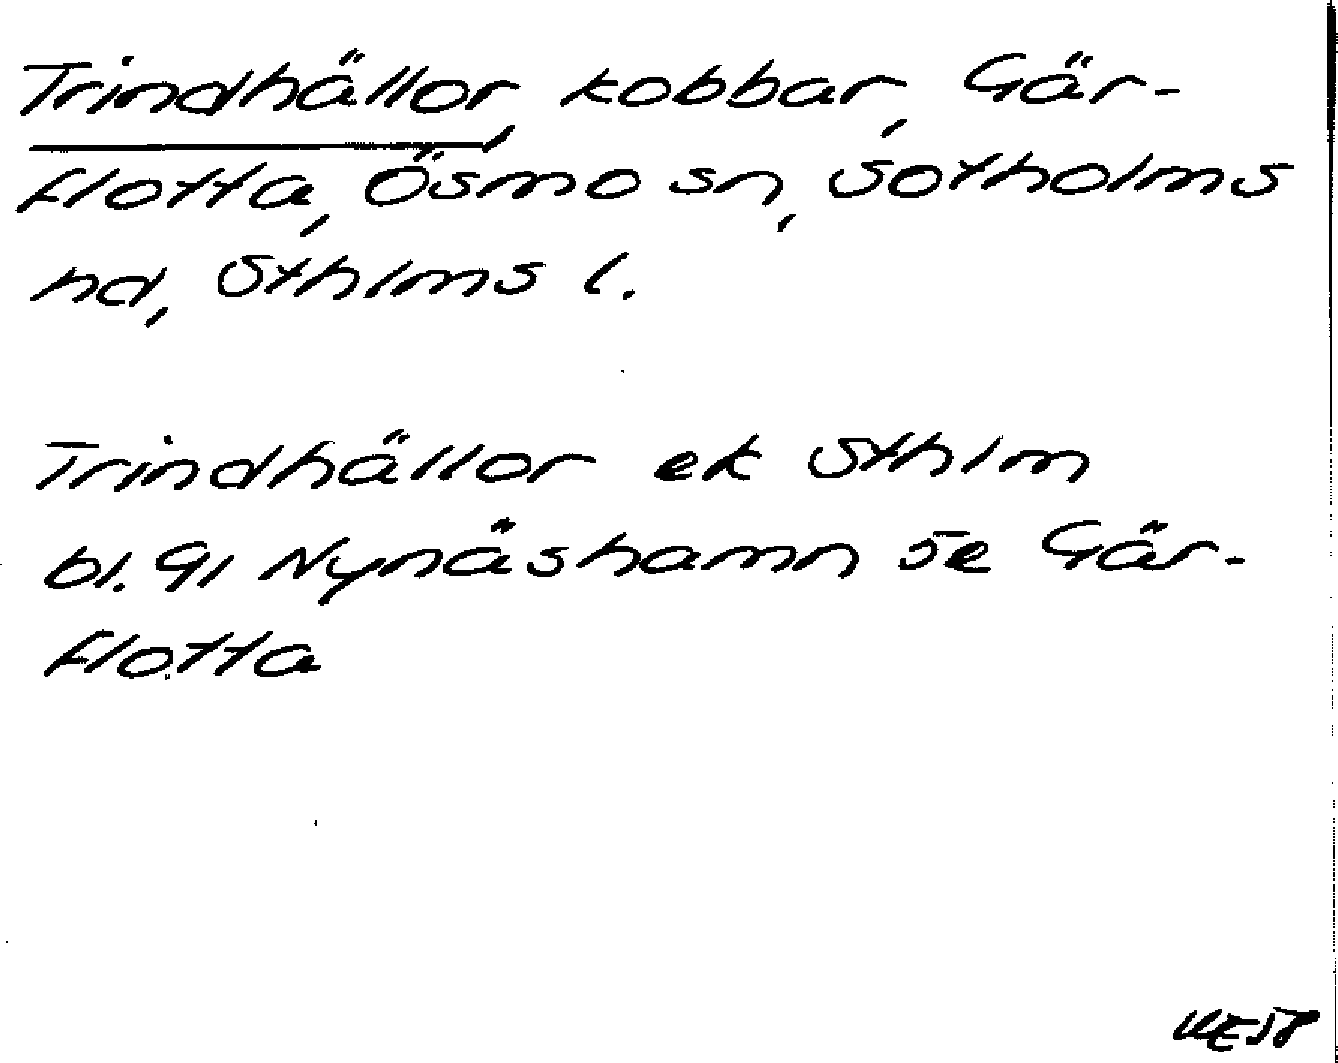 Trindhällor, kobbar, Gär-
flotta, Ösmo sn, Sotholms
hd, Sthlms l.
Trindhällor ek Sthlm
bl. 91 Nynäshamn se Gär-
flotta